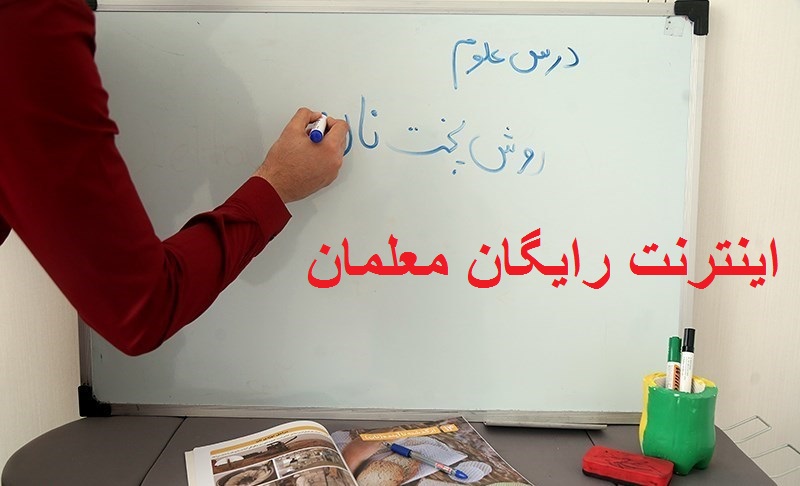 درس علوم
روش پخت نان
اینترنت رایگان معلمان